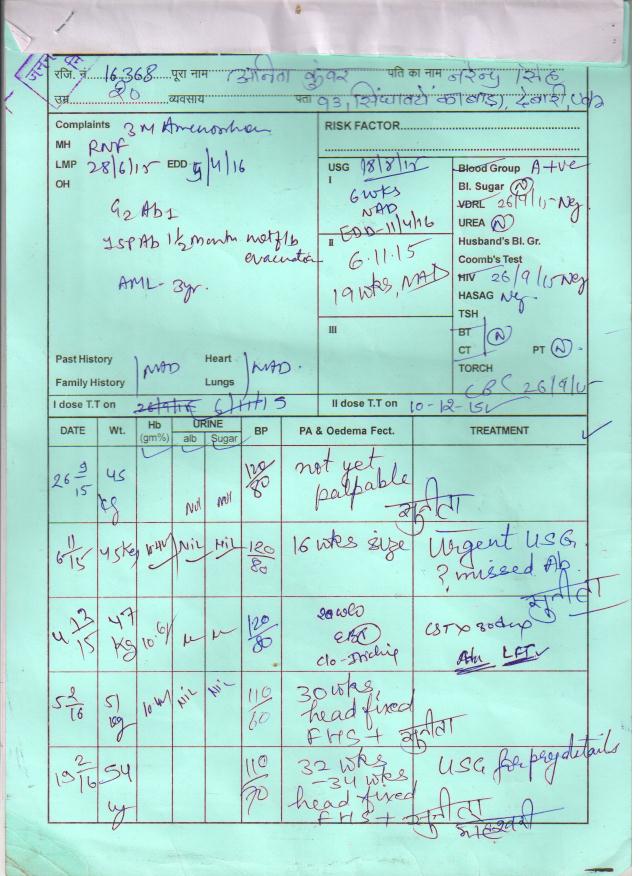 रजि. नं. 16368 पूरा नाम अनिता कुंवर पति का नाम नरेन्द्र सिंह
उम्र 20 व्यवसाय पता 93, सिंघावतो का बाड़ा, देबारी,
Complaints 3 M Amenorrhoea
MH RNF
LMP 28/6/15 EDD 5/4/16
OH
G2 Ab1
1 SP Ab 1 1/2 month not f/b
evacuation
AML - 3yr.
Past History NAD Heart NAD.
Family History Lungs
RISK FACTOR
USG 18/8/15
I
6 wks
NAD
EDD - 11/4/16
II 6.11.15
19 wks, NAD
III
Blood Group A+ve
Bl. Sugar N
VDRL 26/9/15 Neg
UREA N
Husband's Bl. Gr.
Coomb's Test
HIV 26/9/15 Neg
HASAG Neg.
TSH
BT N
CT PT N
TORCH
CBC 26/9/15
I dose T.T on 26/9/15 6/11/15 II dose T.T on 10-12-15
DATE Wt. Hb (gm%) URINE alb Sugar BP PA & Oedema Fect. TREATMENT
26 9/15 45 kg Nil Nil 120/80 not yet palpable
सुनीता
6 11/15 45kg Nil Nil 120/80 16 wks size Urgent USG
? missed Ab.
सुनीता
15 47 kg 10.6 120/80 30 days
LFT
5 2/16 51 kg Nil Nil 110/60 30 wks,
head fixed
FHS + सुनीता
19 2/16 54 kg 110/70 32 wks USG for preg details
- 34 wks
head fixed
FHS + सुनीता